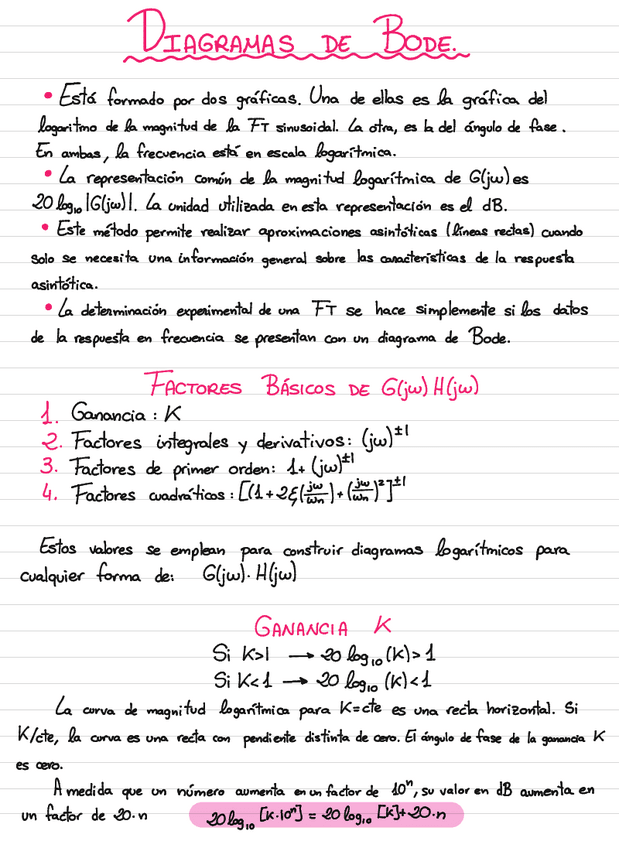 DIAGRAMAS DE BODE.
• Está formado por dos gráficas. Una de ellas es la gráfica del
logaritmo de la magnitud de la FT sinusoidal. La otra, es la del ángulo de fase.
En ambas, la frecuencia está en escala logarítmica.
• La representación común de la magnitud logarítmica de G(jω) es
20 log₁₀ |G(jω)|. La unidad utilizada en esta representación es el dB.
• Este método permite realizar aproximaciones asintóticas (líneas rectas) cuando
solo se necesita una información general sobre las características de la respuesta
asintótica.
• La determinación experimental de una FT se hace simplemente si los datos
de la respuesta en frecuencia se presentan con un diagrama de Bode.
FACTORES BÁSICOS DE G(jω) H(jω)
1. Ganancia: K
2. Factores integrales y derivativos: (jω)^±1
3. Factores de primer orden: 1+(jω)^±1
4. Factores cuadráticos: [(1+2ξ(jω/ωn)+(jω/ωn)²]^±1
Estos valores se emplean para construir diagramas logarítmicos para
cualquier forma de: G(jω)·H(jω)
GANANCIA K
Si K>1 → 20 log₁₀ (K)>1
Si K<1 → 20 log₁₀ (K)<1
La curva de magnitud logarítmica para K=cte es una recta horizontal. Si
K/cte, la curva es una recta con pendiente distinta de cero. El ángulo de fase de la ganancia K
es cero.
A medida que un número aumenta en un factor de 10ⁿ, su valor en dB aumenta en
un factor de 20·n 20 log₁₀ [K·10ⁿ] = 20 log₁₀ [K]+20·n